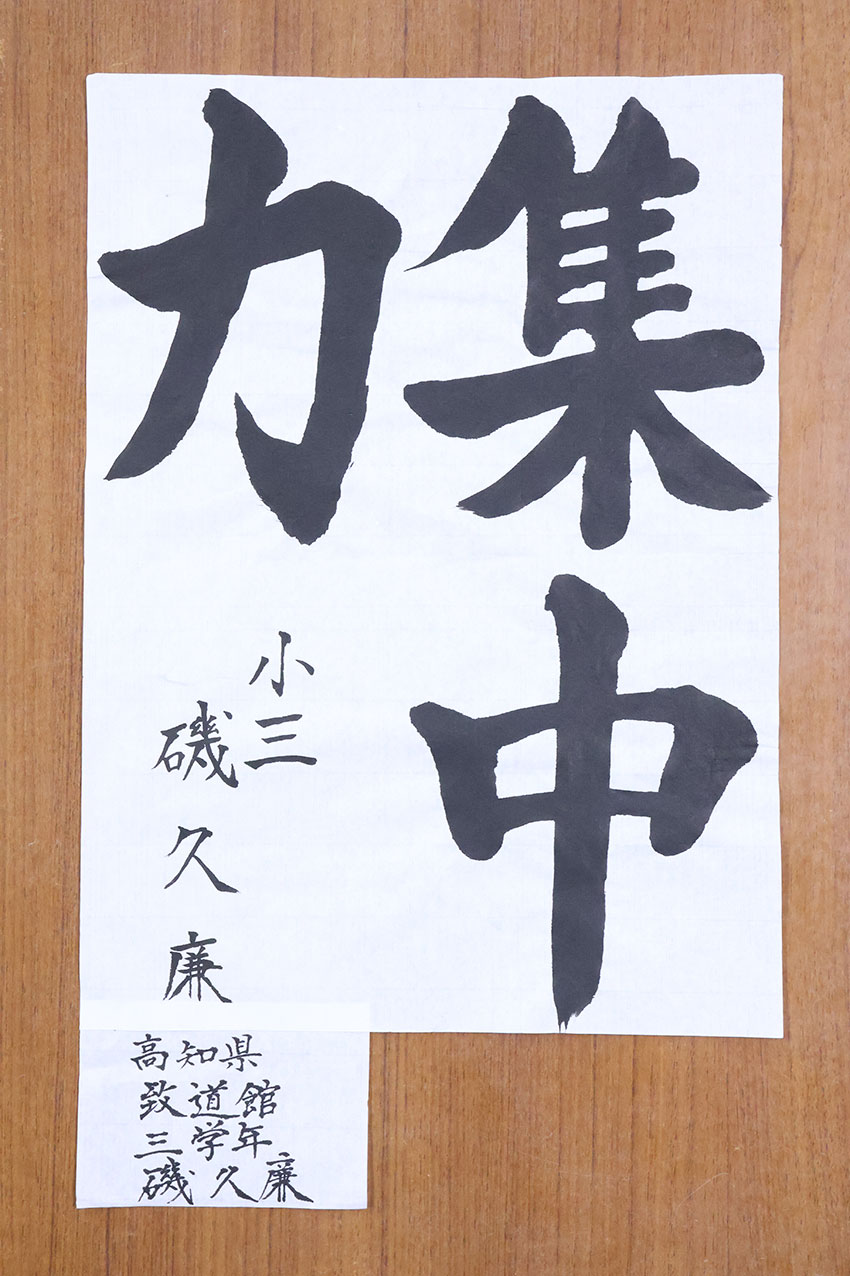 集中
力
小三
磯久廉
高知県
致道館
三学年
磯久廉